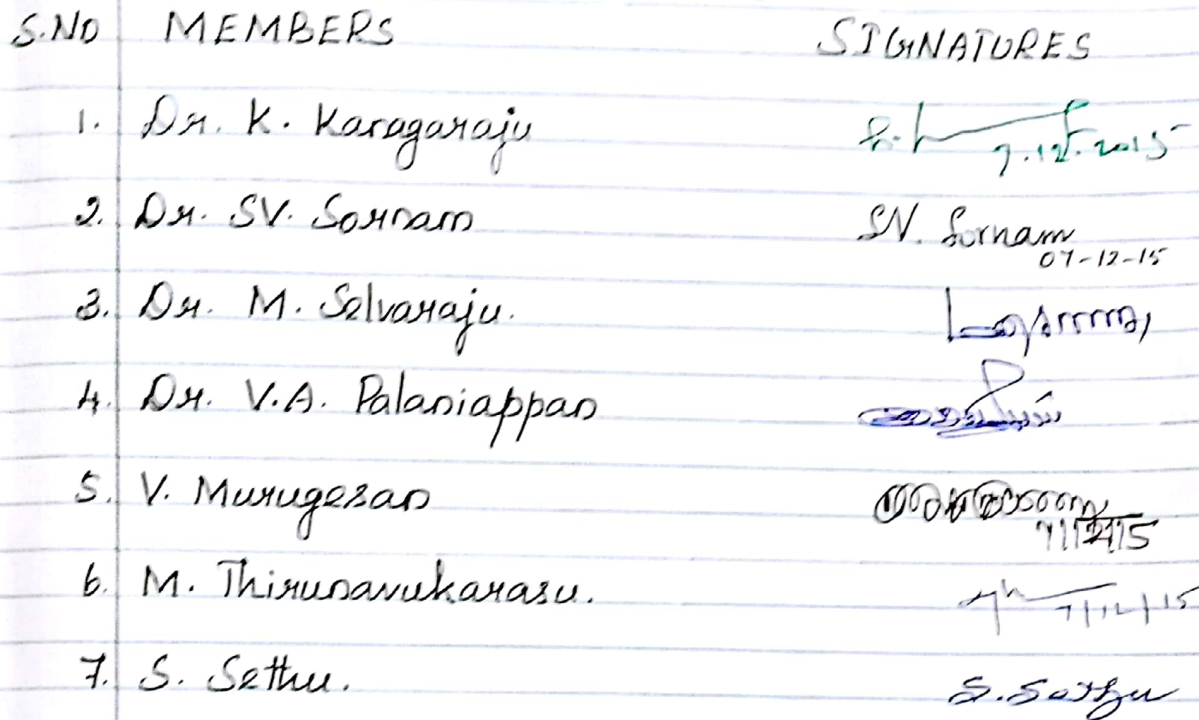 S.NO MEMBERS SIGNATURES
1. Dr. K. Karagaraju 7.12.2015
2. Dr. SV. Sornam SV. Sornam
07-12-15
3. Dr. M. Selvaraju.
4. Dr. V.A. Palaniappan
5. V. Murugesan
7/12/15
6. M. Thirunavukarasu. 7/12/15
7. S. Sethu. S. Sethu